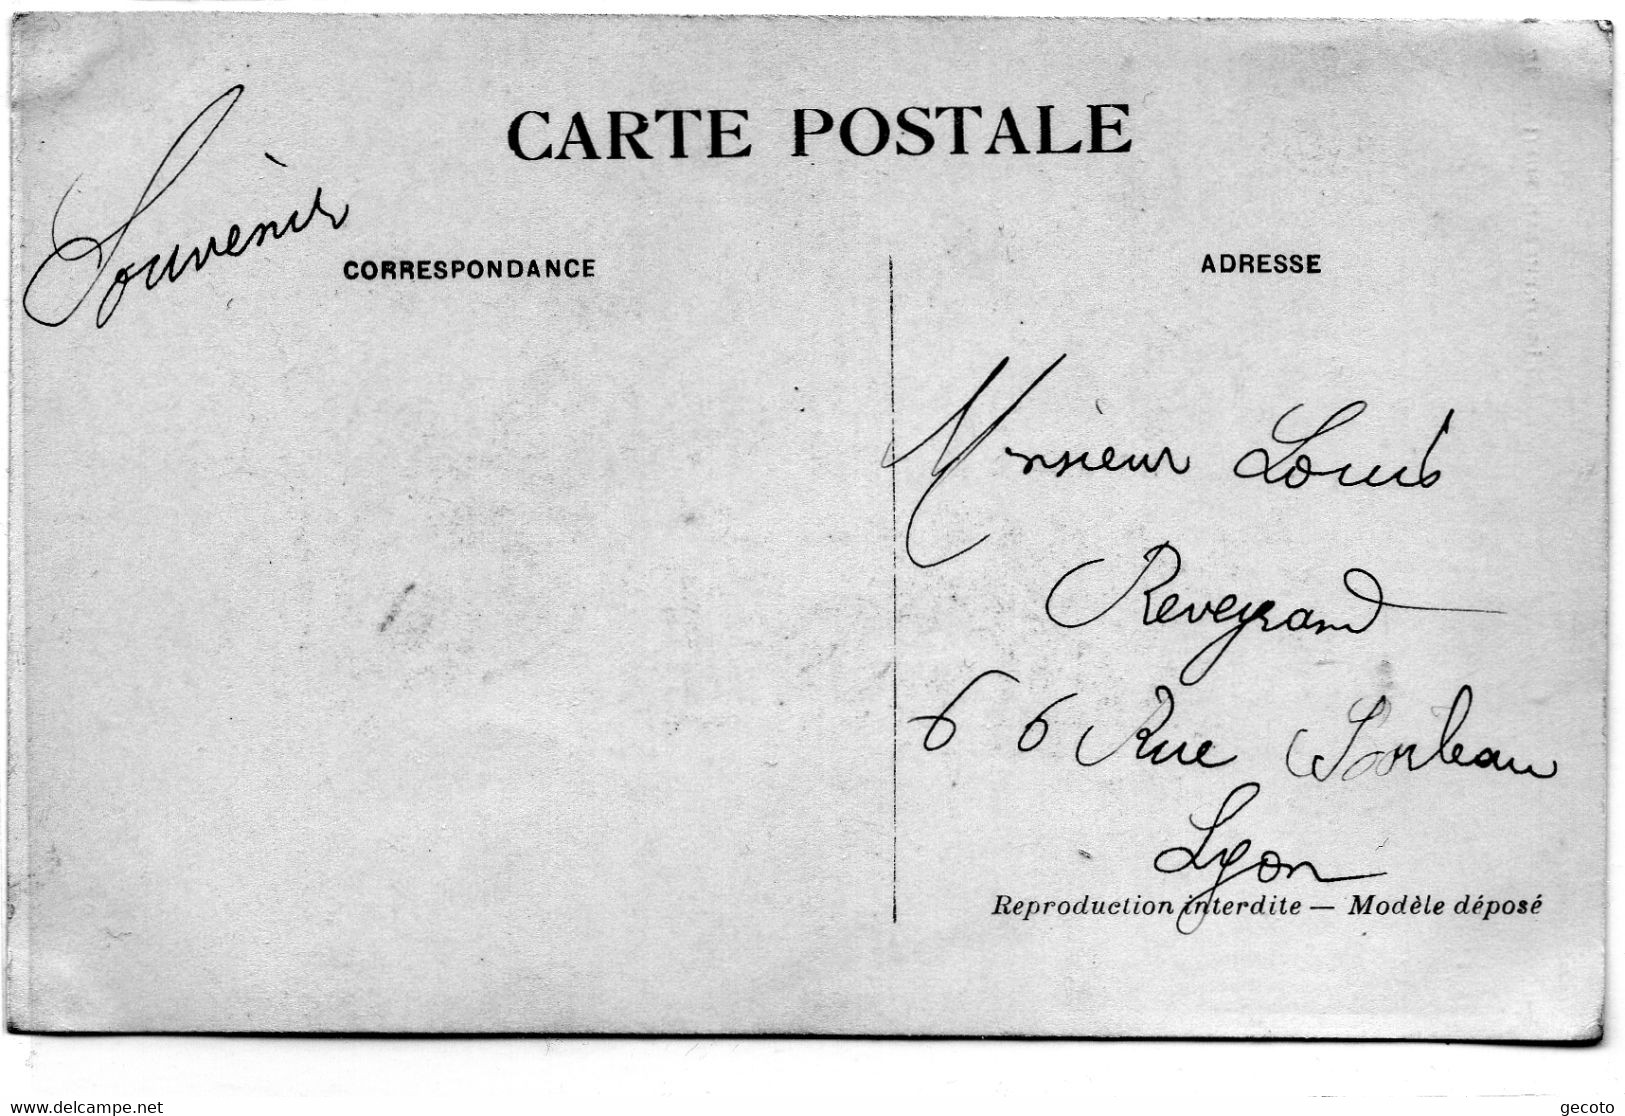 CARTE POSTALE
Souvenir
CORRESPONDANCE
ADRESSE
Monsieur Louis
Reveyrand
66 Rue
Lyon
Reproduction interdite — Modèle déposé
www.delcampe.net
gecoto